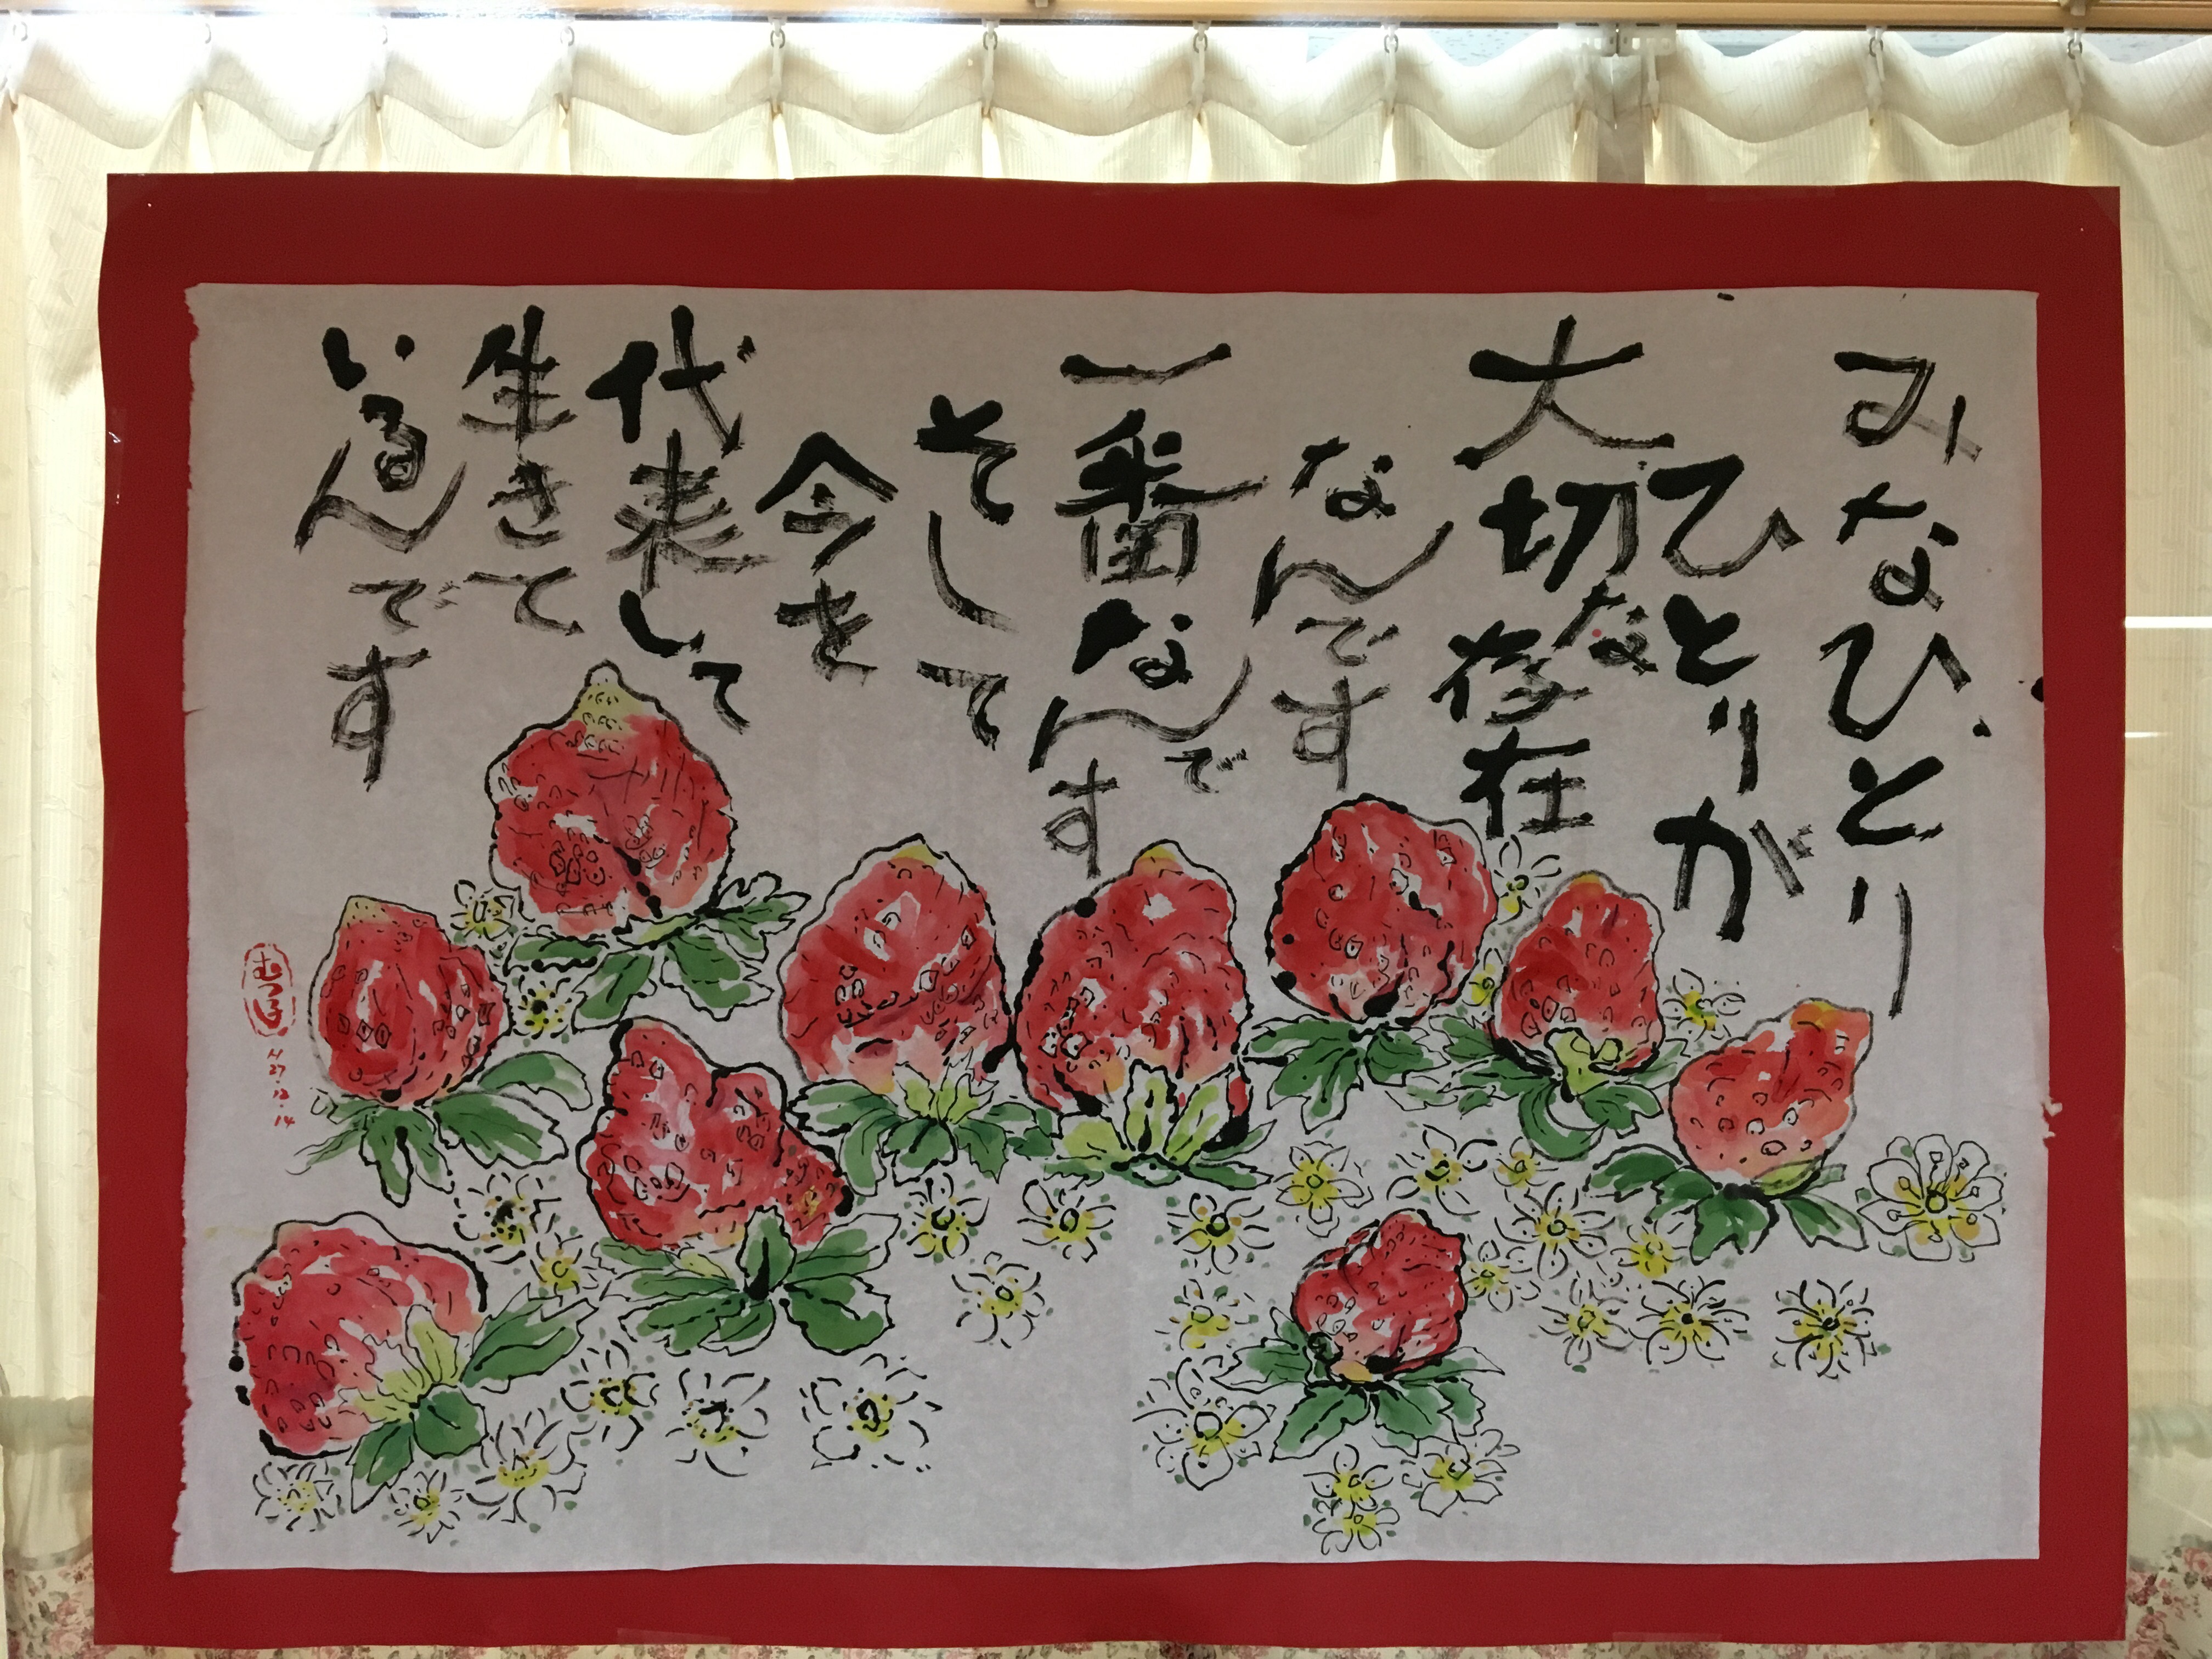 みなひとり
ひとりが
大切な
存在
なんです
一番なんです
そして
今を
代表して
生きて
いるんです
H27.12.14